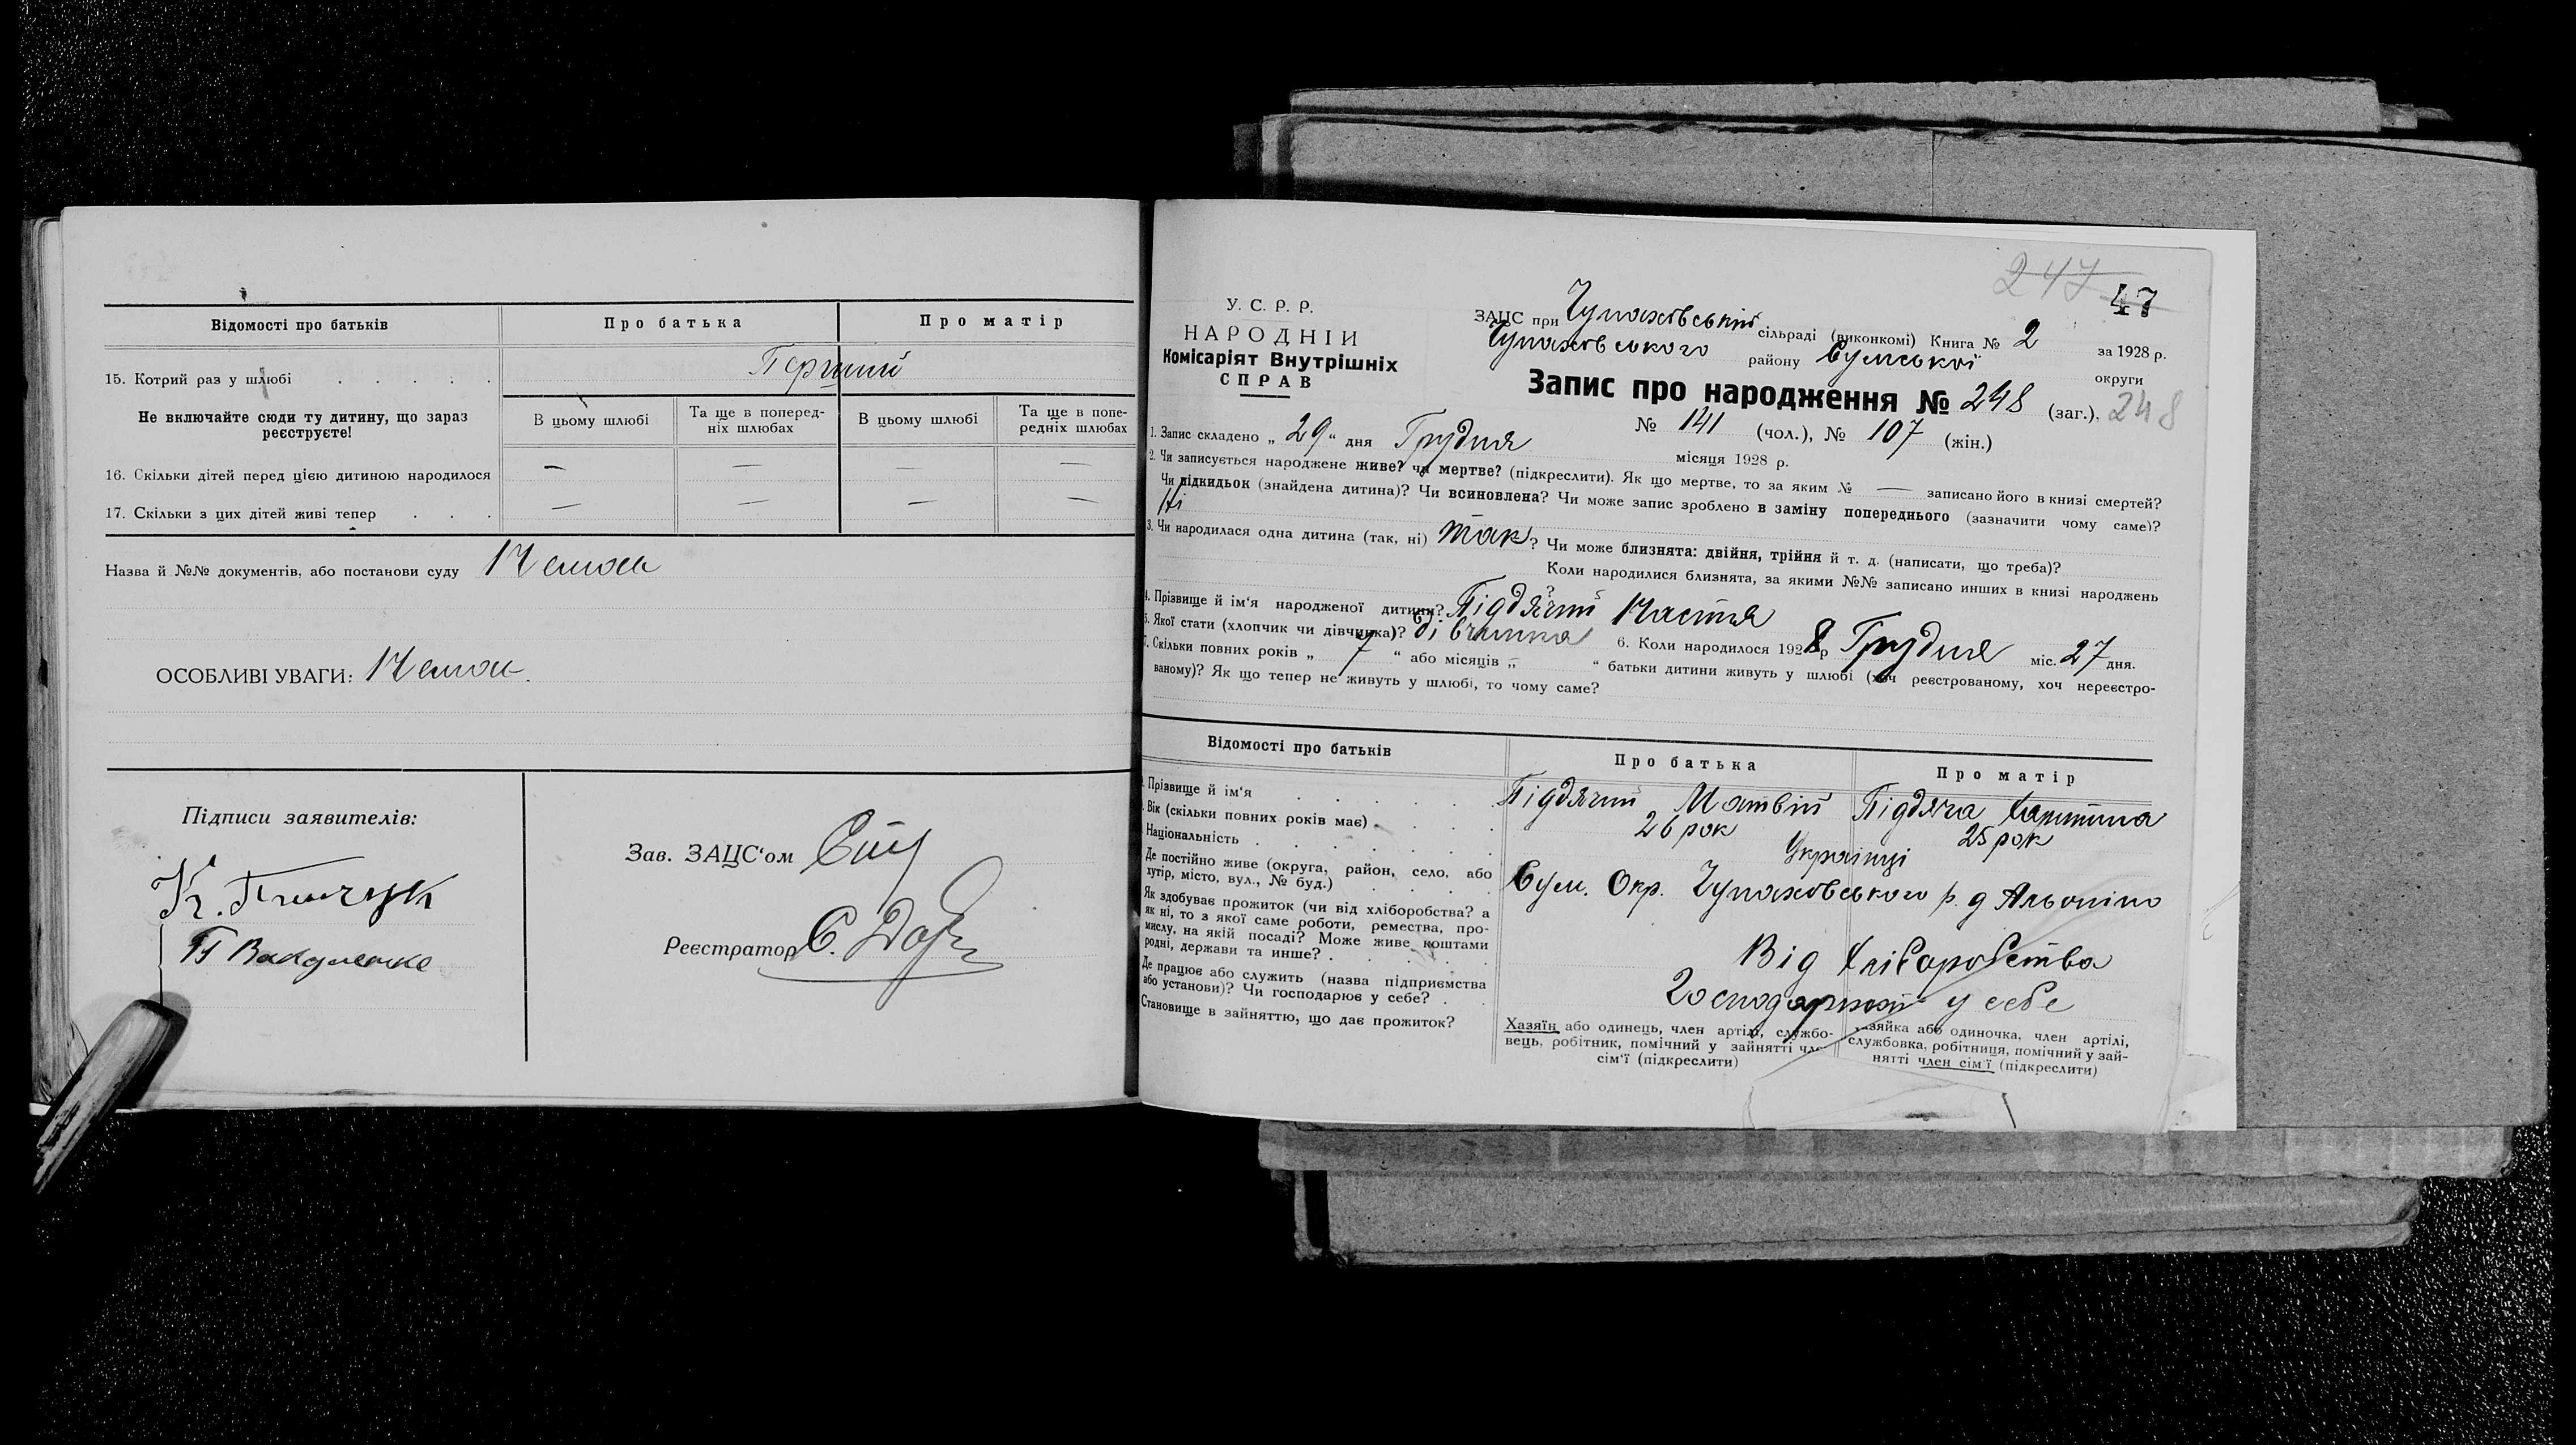 Відомості про батьків
Про батька
Про матір
15. Котрий раз у шлюбі
Перший
Не включайте сюди ту дитину, що зараз реєструєте!
В цьому шлюбі
Та ще в поперед-
ніх шлюбах
В цьому шлюбі
Та ще в попе-
редніх шлюбах
16. Скільки дітей перед цією дитиною народилося — — — —
17. Скільки з цих дітей живі тепер — — — —
Назва й №№ документів, або постанови суду Немає
ОСОБЛИВІ УВАГИ: Немає.
Підписи заявителів:
К.
П
Зав. ЗАЦС'ом
Реєстратор С.
247 47
У. С. Р. Р.
НАРОДНІЙ
Комісаріят Внутрішніх
СПРАВ
ЗАЦС при Чупахівський сільраді (виконкомі) Книга № 2 за 1928 р.
Чупахівського району Сумської округи
Запис про народження № 248 (заг.), 248
№ 141 (чол.), № 107 (жін.)
1. Запис складено „ 29 “ дня Грудня місяця 1928 р.
2. Чи записується народжене живе? чи мертве? (підкреслити). Як що мертве, то за яким № — записано його в книзі смертей?
Чи підкидьок (знайдена дитина)? Чи всиновлена? Чи може запис зроблено в заміну попереднього (зазначити чому саме)?
Ні
3. Чи народилася одна дитина (так, ні) так ? Чи може близнята: двійня, трійня й т. д. (написати, що треба)?
Коли народилися близнята, за якими №№ записано инших в книзі народжень
4. Прізвище й ім'я народженої дитини? Піддячий Настя
5. Якої стати (хлопчик чи дівчинка)? дівчинка 6. Коли народилося 1928 р Грудня міс. 27 дня.
7. Скільки повних років „ 7 “ або місяців „ “ батьки дитини живуть у шлюбі (хоч реєстрованому, хоч нереєстро-
ваному)? Як що тепер не живуть у шлюбі, то чому саме?
Відомості про батьків
Про батька
Про матір
Прізвище й ім'я Піддячий Матвій Піддяча
Вік (скільки повних років має) 26 рок 25 рок
Національність Українці
Де постійно живе (округа, район, село, або
хутір, місто, вул., № буд.)
Сум. Окр. Чупахівського р.
Як здобуває прожиток (чи від хліборобства? а
як ні, то з якої саме роботи, ремества, про-
мислу, на якій посаді? Може живе коштами
родні, держави та инше?
Від хліборобства
Де працює або служить (назва підприємства
або установи)? Чи господарює у себе?
у себе
Становище в зайняттю, що дає прожиток?
Хазяїн або одинець, член артілі, службо-
вець, робітник, помічний у зайнятті
сім'ї (підкреслити)
хазяйка або одиночка, член артілі,
службовка, робітниця, помічний у зай-
нятті член сім'ї (підкреслити)